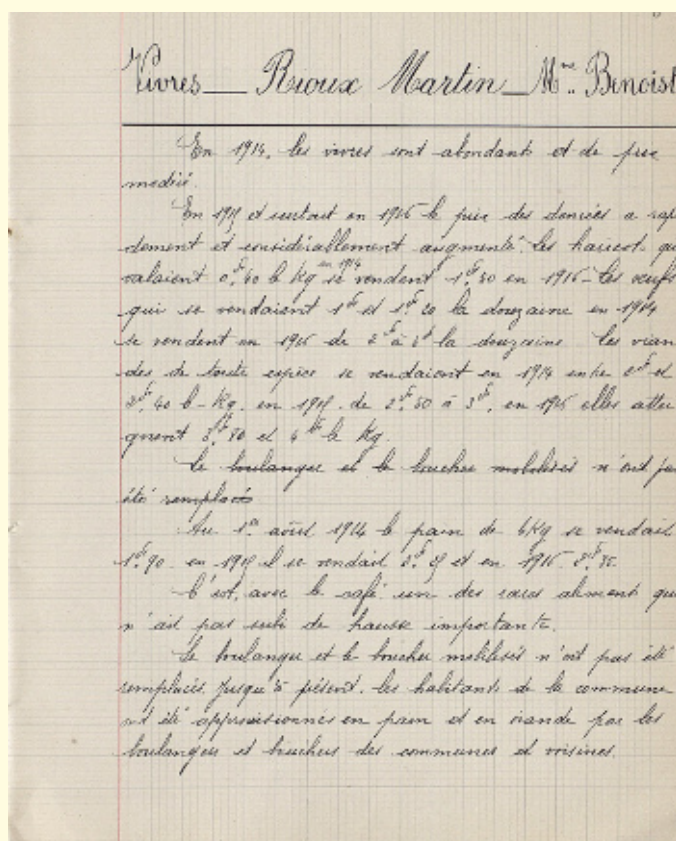 Vivres — Rioux Martin — Mme Benoist
En 1914, les vivres sont abondants et de prix
modéré.
En 1915 et surtout en 1916 le prix des denrées a rapi
dement et considérablement augmenté. Les haricots qui
valaient 0f,40 le Kg en 1914 se vendent 1f,50 en 1916 - Les œufs
qui se vendaient 1f et 1f,20 la douzaine en 1914
se vendent en 1916 de 2f à 3f la douzaine Les vian
des de toute espèce se vendaient en 1914 entre 2f et
2f,40 le Kg. en 1915. de 2f,50 à 3f, en 1916 elles attei
gnent 3f,50 et 4f le Kg.
Le boulanger et le boucher mobilisés n'ont pas
été remplacés
Au 1er août 1914 le pain de 6Kg se vendait
1f,90. en 1915 il se vendait et en 1916.
C'est, avec le café un des rares aliments qui
n'ait pas subi de hausse importante.
Le boulanger et le boucher mobilisés n'ont pas été
remplacés. Jusqu'à présent, les habitants de la commune
ont été approvisionnés en pain et en viande par les
boulangers et bouchers des communes et voisines.